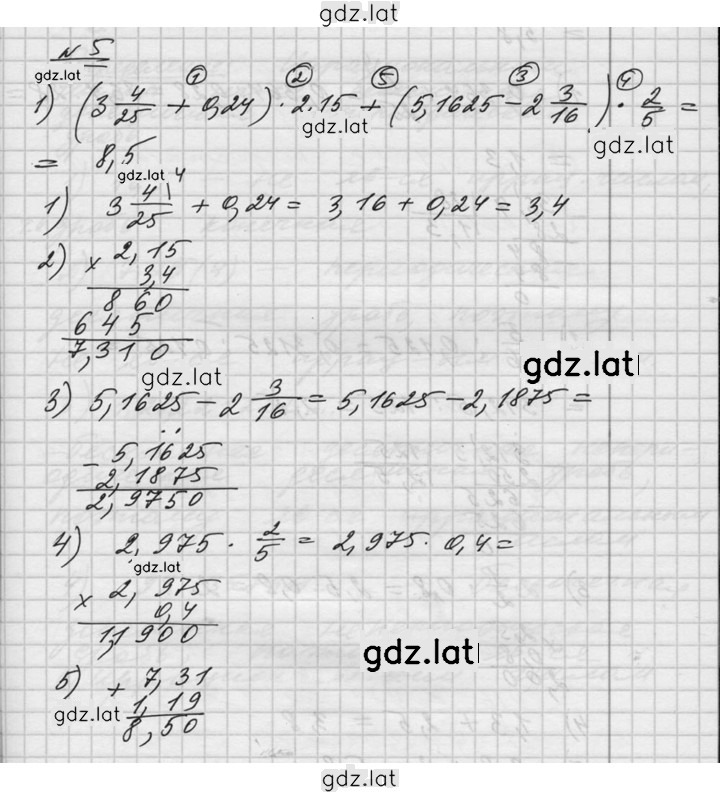 gdz.lat
№ 5
gdz.lat
① ② ⑤ ③ ④
1) (3 4/25 + 0,24) · 2.15 + (5,1625 - 2 3/16) · 2/5 =
gdz.lat
gdz.lat
= 8,5
gdz.lat
1) 3 4/25 \4 + 0,24 = 3,16 + 0,24 = 3,4
2) × 2,15
3,4
860
645
7,310
gdz.lat
gdz.lat
3) 5,1625 - 2 3/16 = 5,1625 - 2,1875 =
- 5,1625
2,1875
2,9750
4) 2,975 · 2/5 = 2,975 · 0,4 =
gdz.lat
× 2,975
0,4
1,1900
gdz.lat
5) + 7,31
1,19
gdz.lat
8,50
gdz.lat